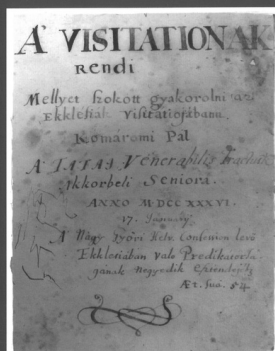 A' VISITATIONAK
Rendi
Mellyet szokott gyakorolni az
Ekklesiak Visitatiojában
Komaromi Pal
A TATAI Venerabilis Tractus
kkorbeli Seniora.
ANNO M.DCC XXXVI.
17.
A Nagy Győri Helv. Confession levő
Ekklesiában valo Predikatorsá
gának Negyedik Esztendejéb
Æt. Suæ. 54.